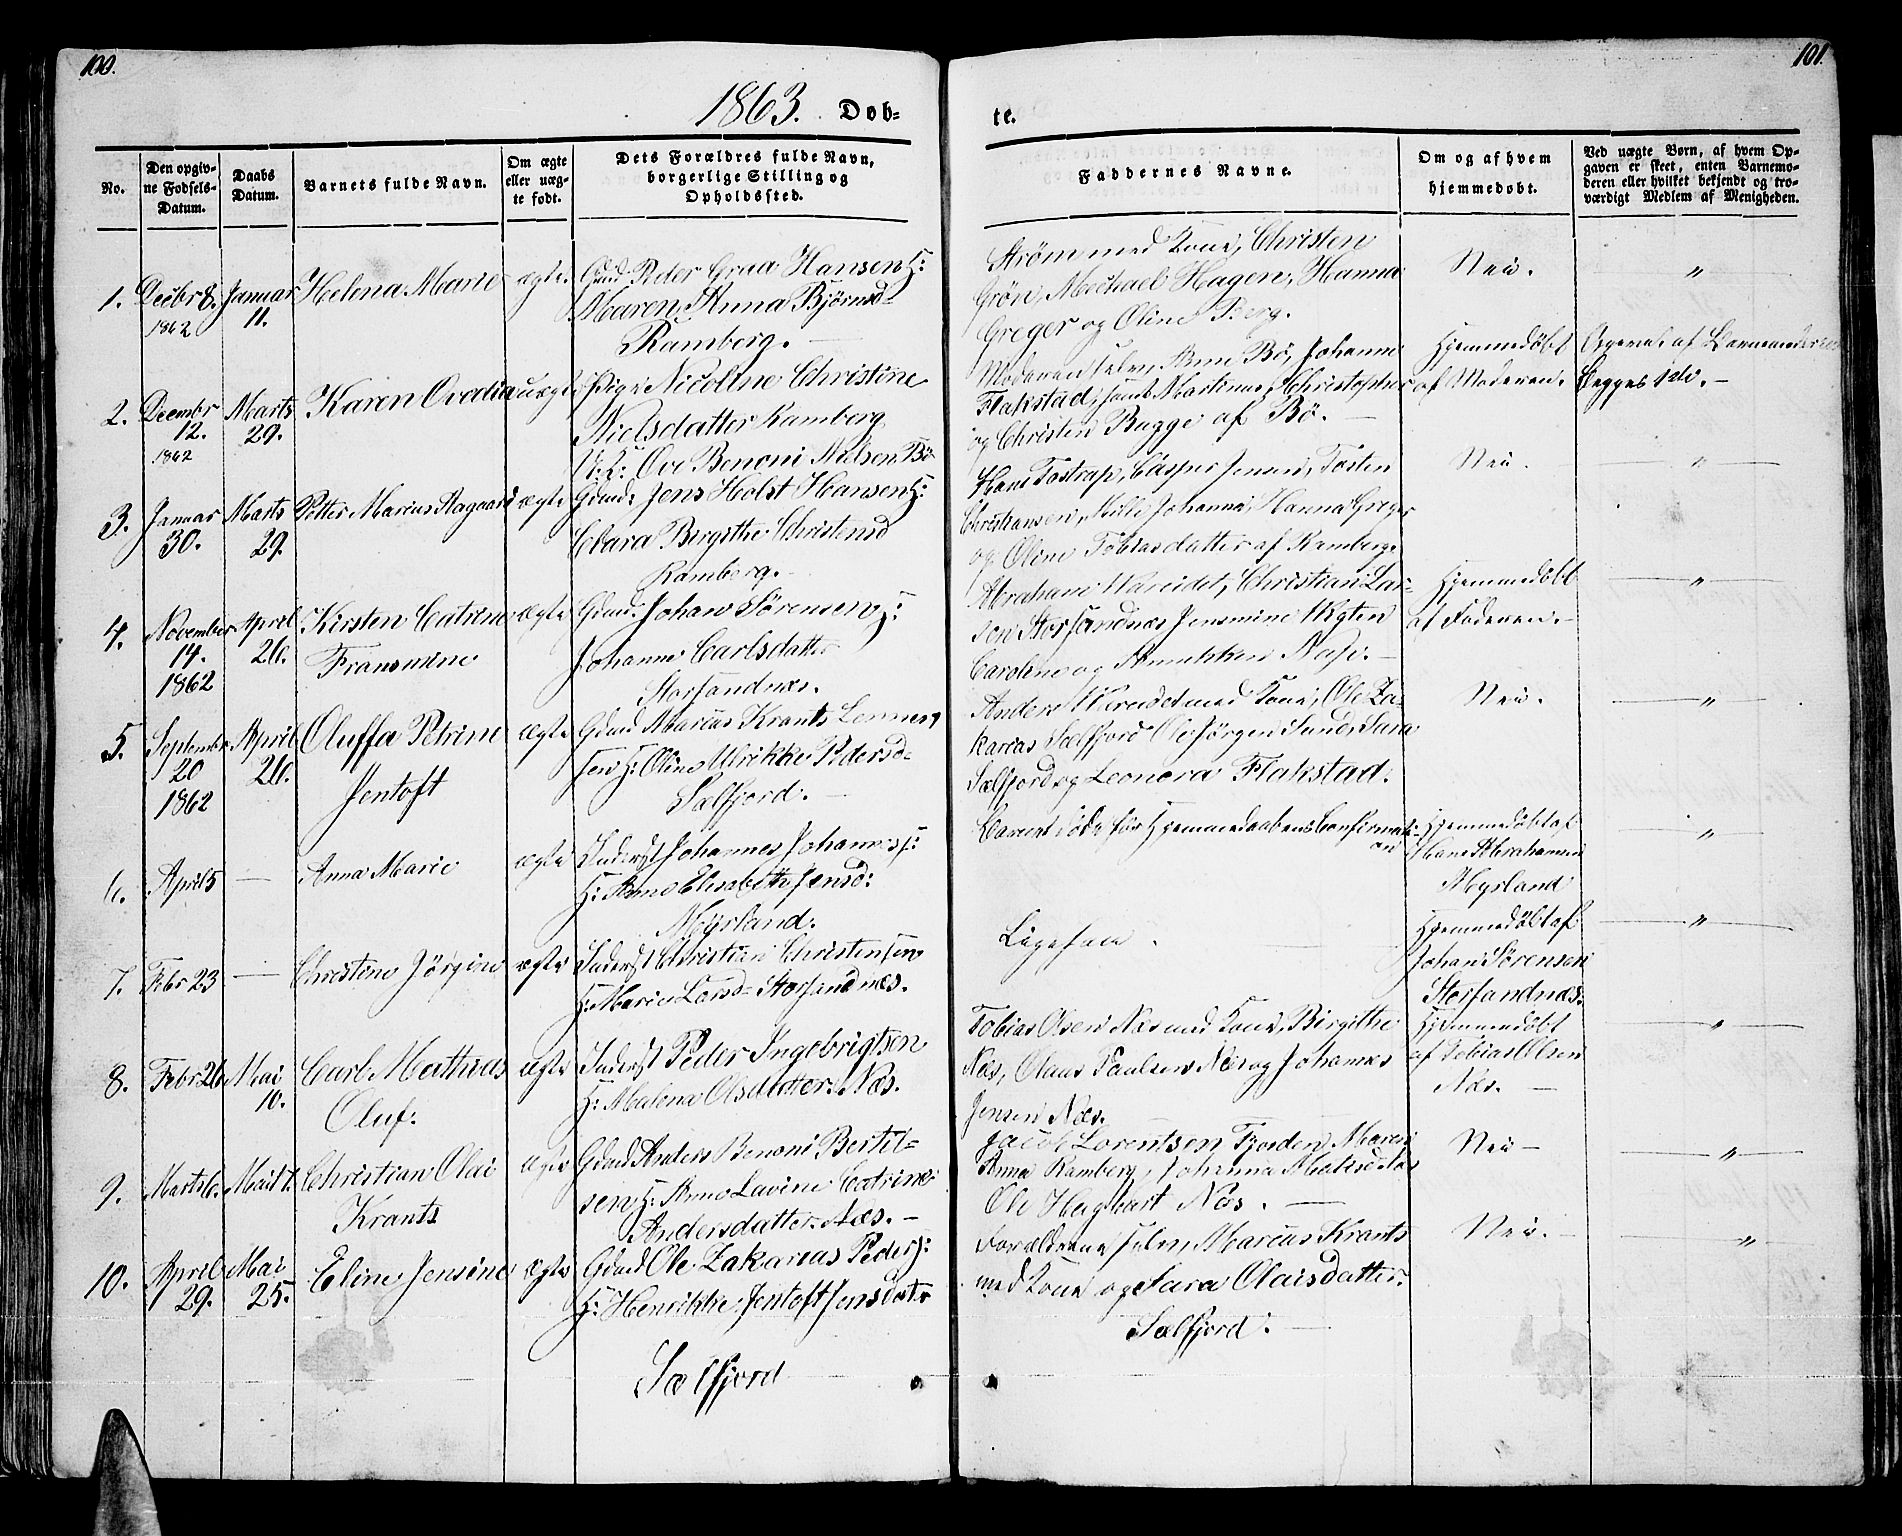 100.
101.
1863. Døb-
te.
No.
Den opgiv-
ne Fødsels-
Datum.
Daabs
Datum.
Barnets fulde Navn.
Om ægte
eller uæg-
te født.
Dets Forældres fulde Navn,
borgerlige Stilling og
Opholdssted.
Faddernes Navne.
Om og af hvem
hjemmedøbt.
Ved uægte Børn, af hvem Op-
gaven er skeet, enten Barnemo-
deren eller hvilket bekjendt og tro-
værdigt Medlem af Menigheden.
1.
Decbr 8.
1862
Januar
11.
Helena Marie
ægte
Gmd Peder Graa Hansen H:
Maren Anna Bjørnsd-
Ramberg. —
Strøm med Kone, Christen
Grøn, Michael Hagen, Hanna
Greger og Oline Berg.
Nei.
"
2.
Decembr
12.
1862
Marts
29.
Karen Ovedia
uægte
Pige Nicoline Christine
Nielsdatter Ramberg
U: K: Ove Benoni Nielsen Bø
Moderen selv, Anne Bø, Johanna
Flakstad, samt Martinus, Christopher
og Christen Bugge af Bø. —
Hjemmedøbt
af Moderen.
Opgivet af Barnemoderen
Begges 1ste. —
3.
Januar
30.
Marts
29.
Petter Marius Aagaard
ægte
Gmd: Jens Holst Hansen H:
Clara Birgithe Christensd
Ramberg. —
Hans Tostrup, Casper Jensen, Tosten
Christiansen, Mille Johanna, Hanna Greger
og Oline Tobiasdatter af Ramberg.
Nei.
"
4.
November
14.
1862
April
26.
Kirsten Catrine
Fransmine
ægte
Gmd. Johan Sørensen H:
Johanna Carlsdatter
Storsandnæs.
Abraham Vareidet, Christian Lar-
sen Storsandnæs Jensmine Vigten
Caroline og Annikken Næs. —
Hjemmedøbt
af Faderen. —
"
5.
Septembr
20
1862
April
26.
Oluffa Petrine
Jentoft
ægte
Gmd Marius Krants Lenner,
sen H: Oline Ulrikke Pedersd-
Sælfjord. —
Anders Vareidet med Kone, Ole Za-
karias Sælfjord Ole Jørgen Sund, Sara
Sælfjord og Leonora Flakstad.
Nei.
"
6.
April 5
—
Anna Marie
ægte
Inderst Johannes Johanness:
H: Anne Elisabeth Jensd:
Mysland.
Barnet døde før Hjemmedaabens Confirmati-
on
Hjemmedøbt af
Hans Abrahamsen
Mysland
"
7.
Febr 23
—
Christine Jørgine
ægte
Inderst Christian Christensen
H: Marie Larsd- Storsandnæs.
Ligesaa.
Hjemmedøbt af
Johan Sørensen
Storsandnæs.
"
8.
Febr 26
Mai
10.
Carl Mathias
Oluf.
ægte
Inderst Peder Ingebrigtsen
H: Malena Olsdatter Næs.
Tobias Olsen Næs med Kone, Birgithe
Næs, Olaus Paulsen Næs og Johannes
Jensen Næs.
Hjemmedøbt
af Tobias Olsen
Næs. —
"
9.
Marts 6.
Mai 17.
Christian Olai
Krants
ægte
Gmd Anders Benoni Bertil-
sen H: Anne Lavine Catrine
Andersdatter Næs. —
Jacob Lorentsen Fjorden, Maren
Anna Ramberg, Johanna Næs
Ole Hagbart Næs. —
Nei —
"
10.
April
29.
Mai
25.
Eline Jensine
ægte
Gmd Ole Zakarias Peders:
H: Henrikke Jentoft Jensdatr
Sælfjord
Forældrene selv, Marcus Krants
med Kone og Sara Olaisdatter.
Sælfjord. —
Nei. —
"